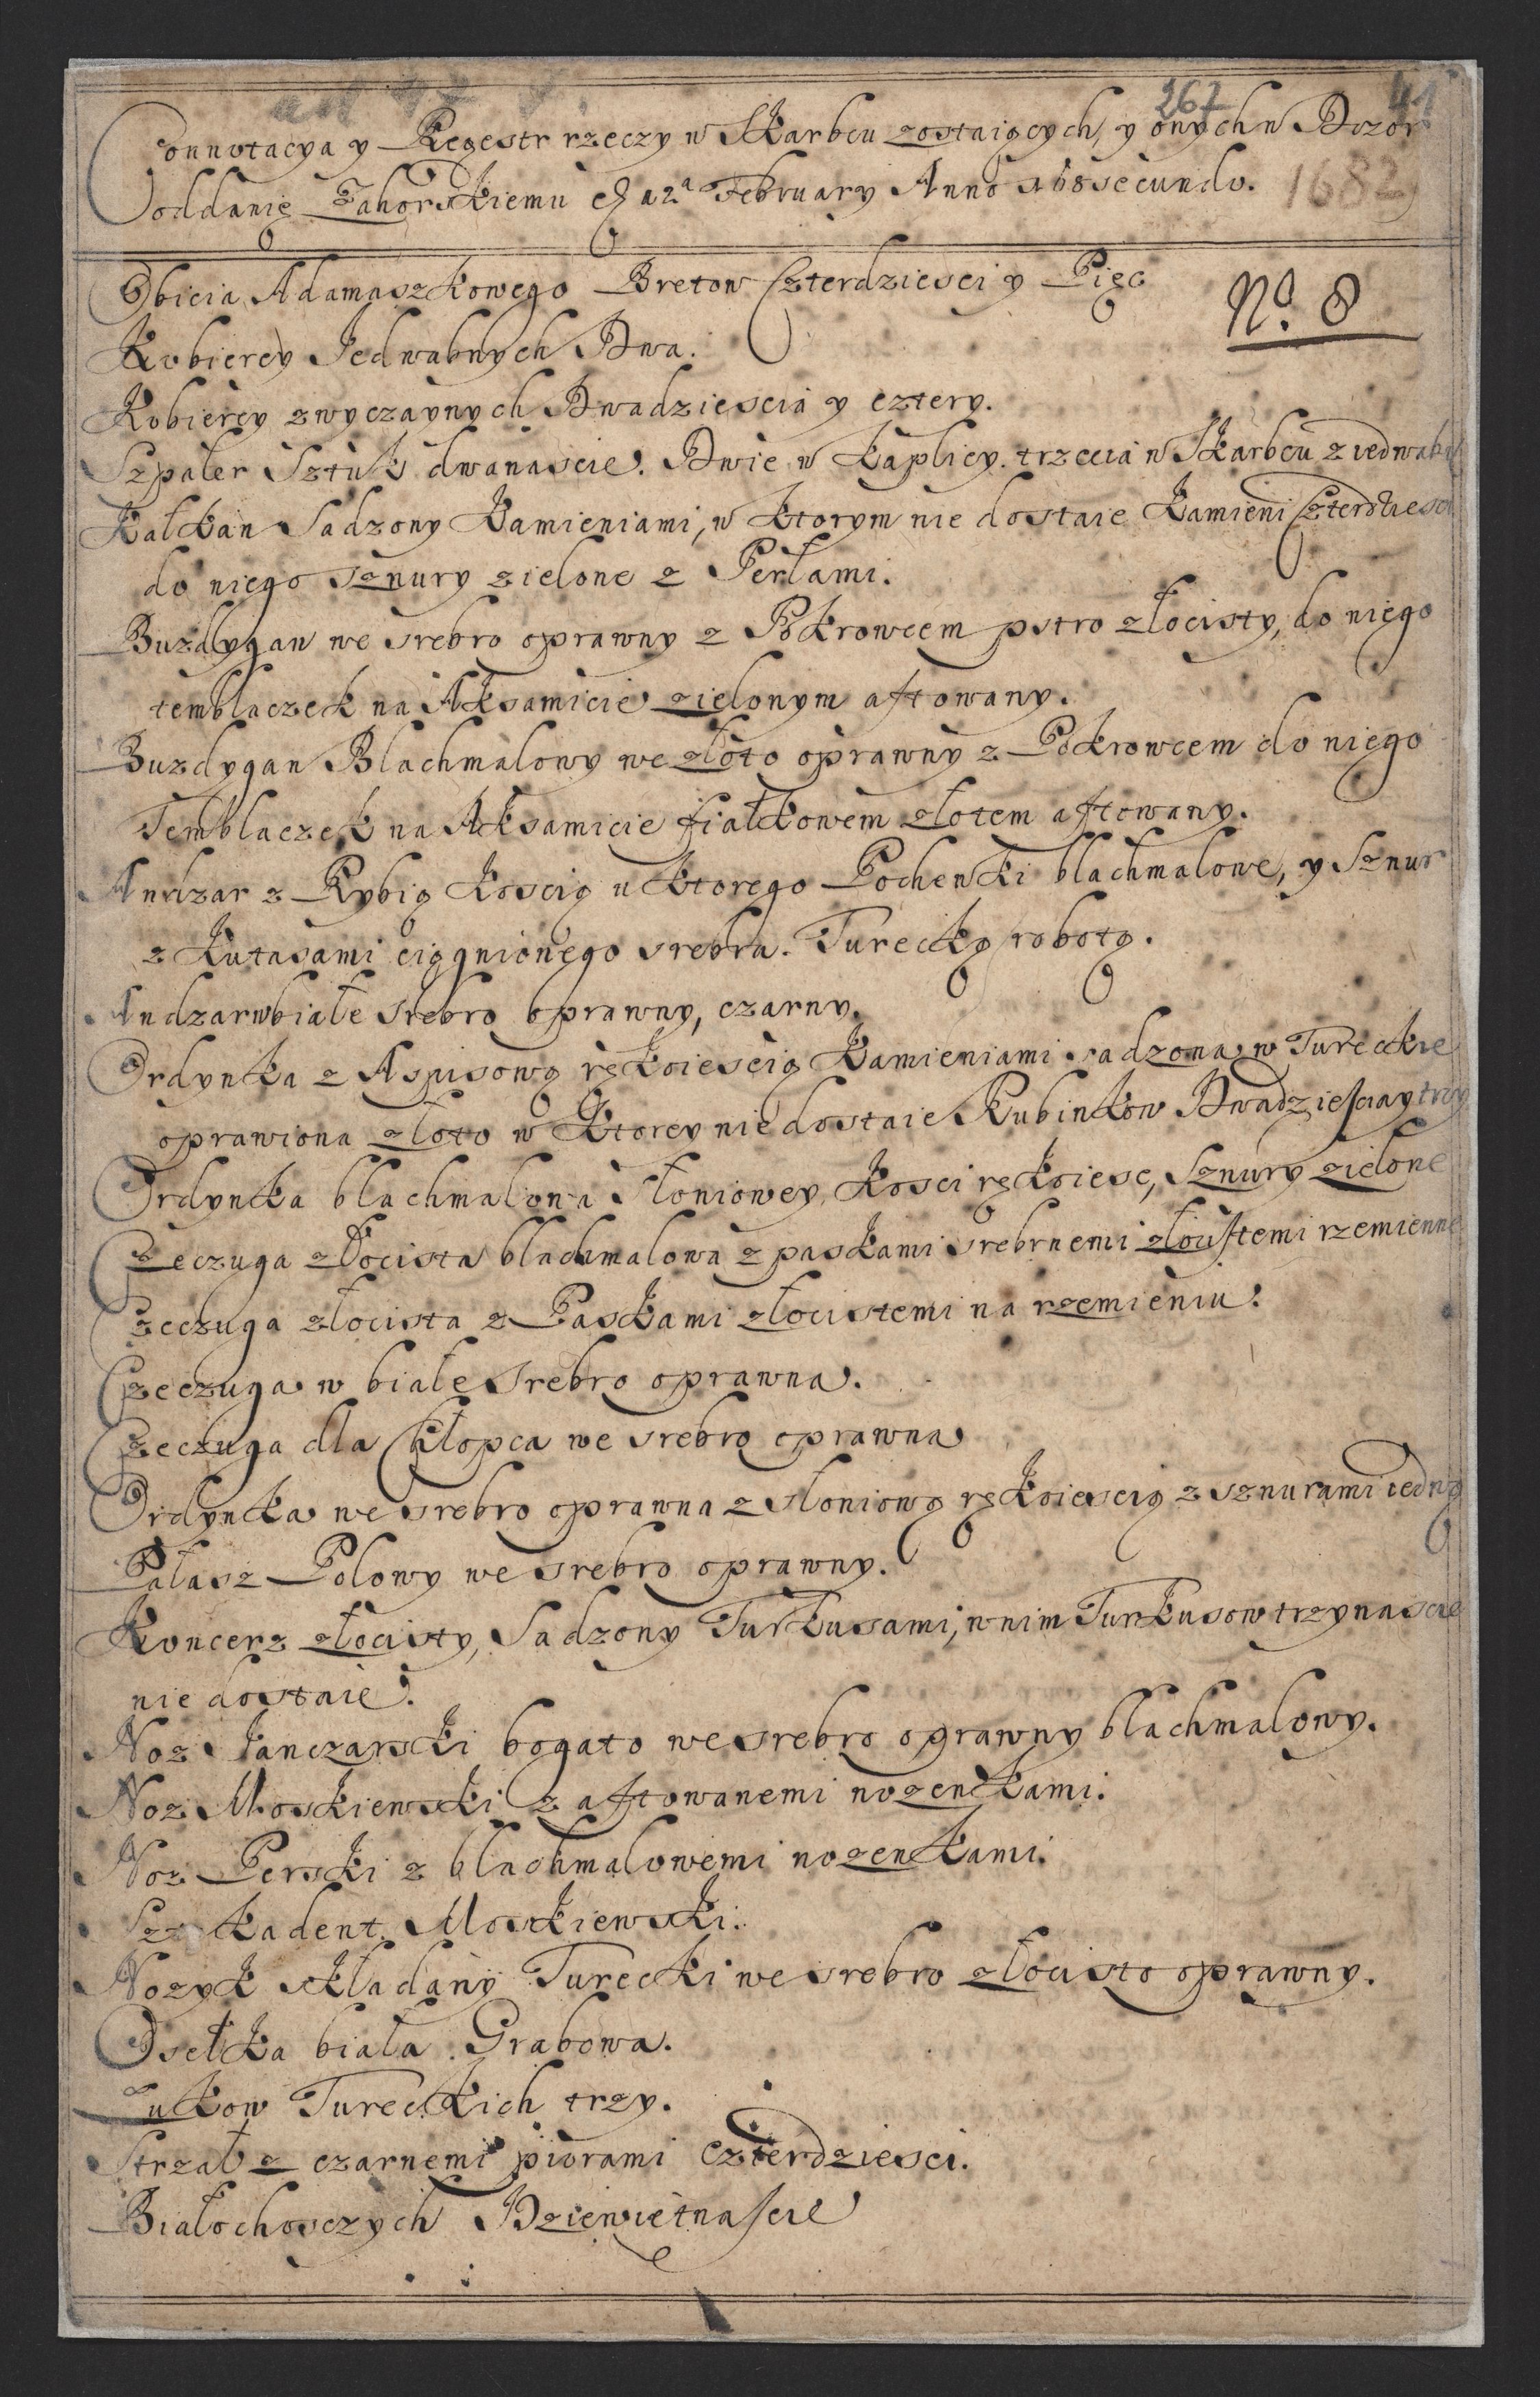 267 41
Connotacya y Regestr rzeczy w Skarbcu zostaiących, y onych w Dozor
oddanię Zahorskiemu 12ª February Anno 168secundo. 1682
Obicia Adamaszkowego Bretow Czterdziesci y Pięc
No. 8
Kobiercy Jedwabnych Dwa.
Kobiercy zwyczaynych Dwadziescia y cztery.
Szpaler Sztuk dwanascie. Dwie w Kaplicy. trzecia w Skarbcu z iedwabi
Kalkan Sadzony Kamieniami, w ktorym nie dostaie Kamieni Czterdziesci
do niego sznury zielone z Perłami.
Buzdygan we srebro oprawny z Pokrowcem pstro złocisty, do niego
temblaczek na Aksamicie zielonym aftowany.
Buzdygan Blachmalowy we złoto oprawny z Pokrowcem do niego
Temblaczek na Aksamicie fiałkowem złotem aftowany.
Andzar z Rybią Koscią u ktorego Pochewki blachmalowe, y Sznur
z Kutasami ciągnionego srebra. Turecką robotą.
Andzar w białe srebro oprawny, czarny.
Ordynka z Aspisową rękoiescią Kamieniami sadzona w Tureckie
oprawiona złoto w ktorey nie dostaie Rubinkow Dwadziescia y trzy
Ordynka blachmalowa Słoniowey Kosci rękoiesc, Sznury zielone
Czeczuga złocista blachmalowa z paskami srebrnemi złocistemi rzemienne
Czeczuga złocista z Paskami złocistemi na rzemieniu.
Czeczuga w białe srebro oprawna.
Czeczuga dla Chłopca we srebro oprawna
Ordynka we srebro oprawna z słoniową rękoiescią z sznurami iedną
Pałasz Polowy we srebro oprawny.
Koncerz złocisty, Sadzony Turkusami, w nim Turkusow trzynascie
nie dostaie.
Noz Janczarski bogato we srebro oprawny blachmalowy.
Noz Moskiewski z aftowanemi nozenkami.
Noz Perski z blachmalowemi nozenkami.
kadent Moskiewski.
Nozyk składany Turecki we srebro złocisto oprawny.
Osełka biała Grabowa.
Łukow Tureckich trzy.
Strzał z czarnemi piorami czterdziesci.
Białochosczych Dziewiętnascie